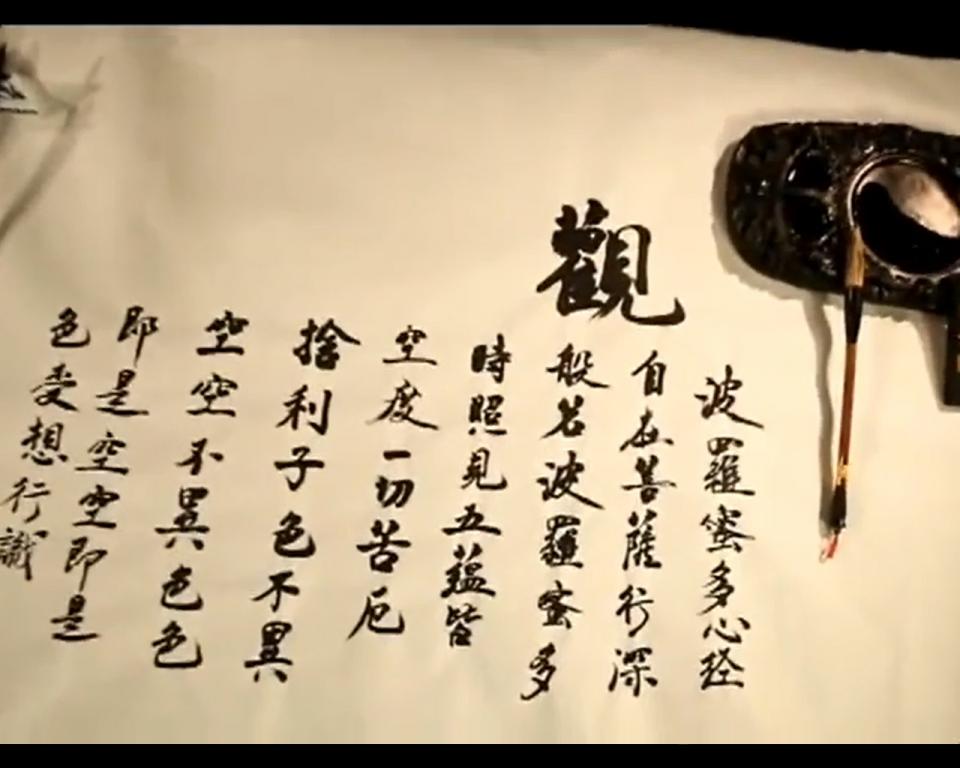 波羅蜜多心経
觀
自在菩薩行深
般若波羅蜜多
時照見五蘊皆
空度一切苦厄
捨利子色不異
空空不異色色
即是空空即是
色受想行識